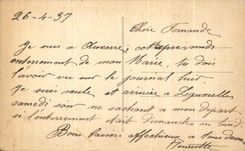 26-4-37
Chère Fernande
Je suis à Auxerre cet après midi
enterrement de mon Parrain, tu dois
l'avoir vu sur le journal hier.
Je suis seule et arrivée à Ligorelles
samedi soir ne sachant à mon départ
si l'enterrement était dimanche ou lundi
Bons baisers affectueux à tous deux
Henriette